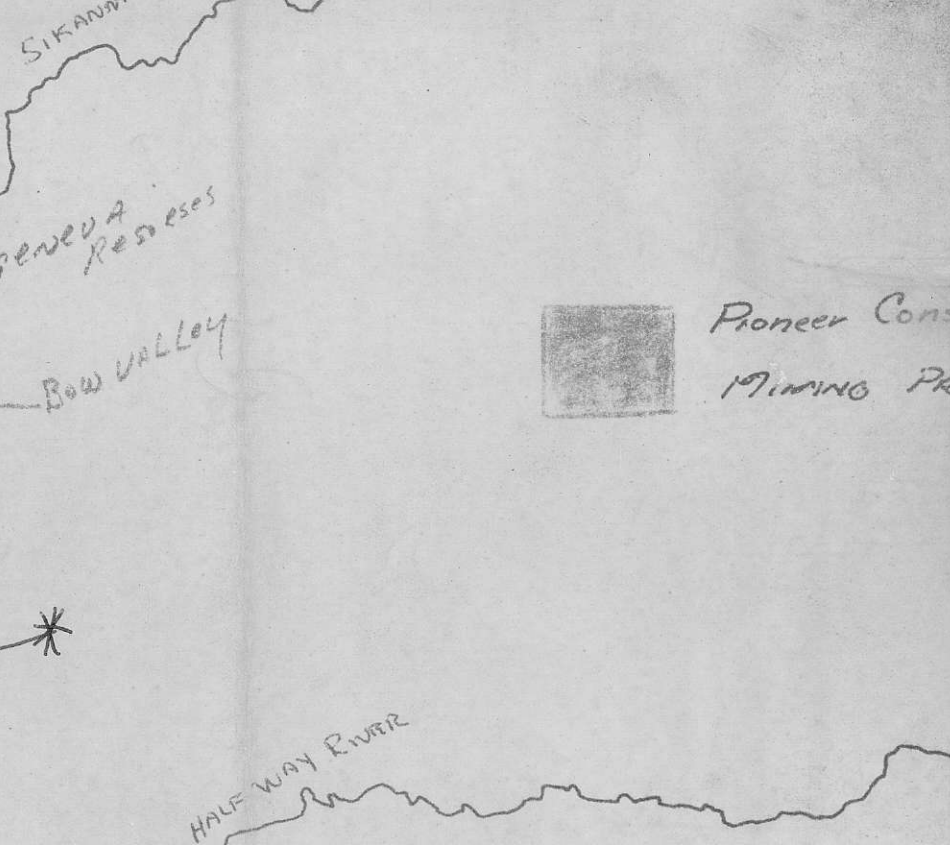 SIKANN
GENEVA
Resoeses
BOW VALLEY
Pioneer Cons
MINING PR
HALF WAY RIVER